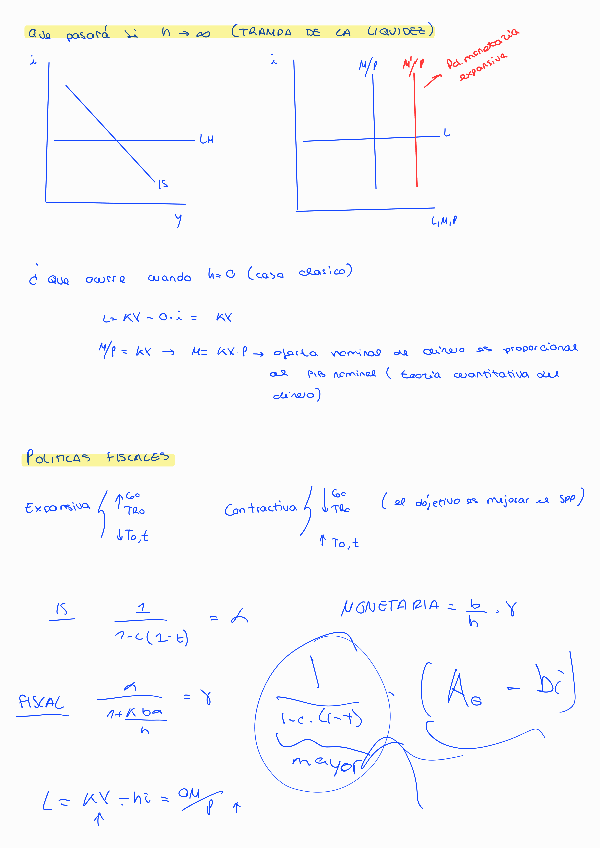 Que pasará si h → ∞ (TRAMPA DE LA LIQUIDEZ)
i
LM
IS
Y
i
M/P
M/P
Pol monetaria
expansiva
L
L,M,P
¿ Que ocurre cuando h=0 (caso clasico)
L= KY - 0·i = KY
M/P = KY → M= KY·P → oferta nominal de dinero es proporcional
al PIB nominal ( teoria cuantitativa del
dinero)
POLITICAS FISCALES
Expansiva { ↑ Go
TRo
↓ To,t
Contractiva { ↓ Go
TRo
↑ To,t
( el objetivo es mejorar el SPP)
IS 1/1-c(1-t) = α
MONETARIA = b/h · γ
FISCAL α/1+Kbα/h = γ
1/1-c.(1-t)
mayor
(Ao - bi)
L = KY - hi = OM/P ↑
↑